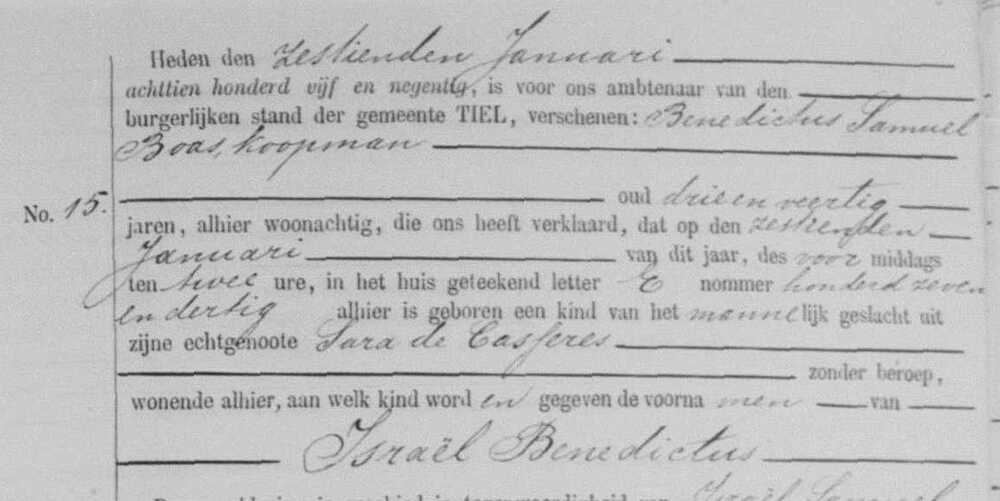 Heden den zestienden Januari
achttien honderd vijf en negentig, is voor ons ambtenaar van den
burgerlijken stand der gemeente TIEL, verschenen: Benedictus Samuel
Boas, koopman
No. 15. oud drie en veertig
jaren, alhier woonachtig, die ons heeft verklaard, dat op den zestienden
Januari van dit jaar, des voor middags
ten twee ure, in het huis geteekend letter E nommer honderd zeven
en dertig alhier is geboren een kind van het mannelijk geslacht uit
zijne echtgenoote Sara de Casseres
zonder beroep,
wonende alhier, aan welk kind word en gegeven de voorna men van
Israël Benedictus
Israël Samuel